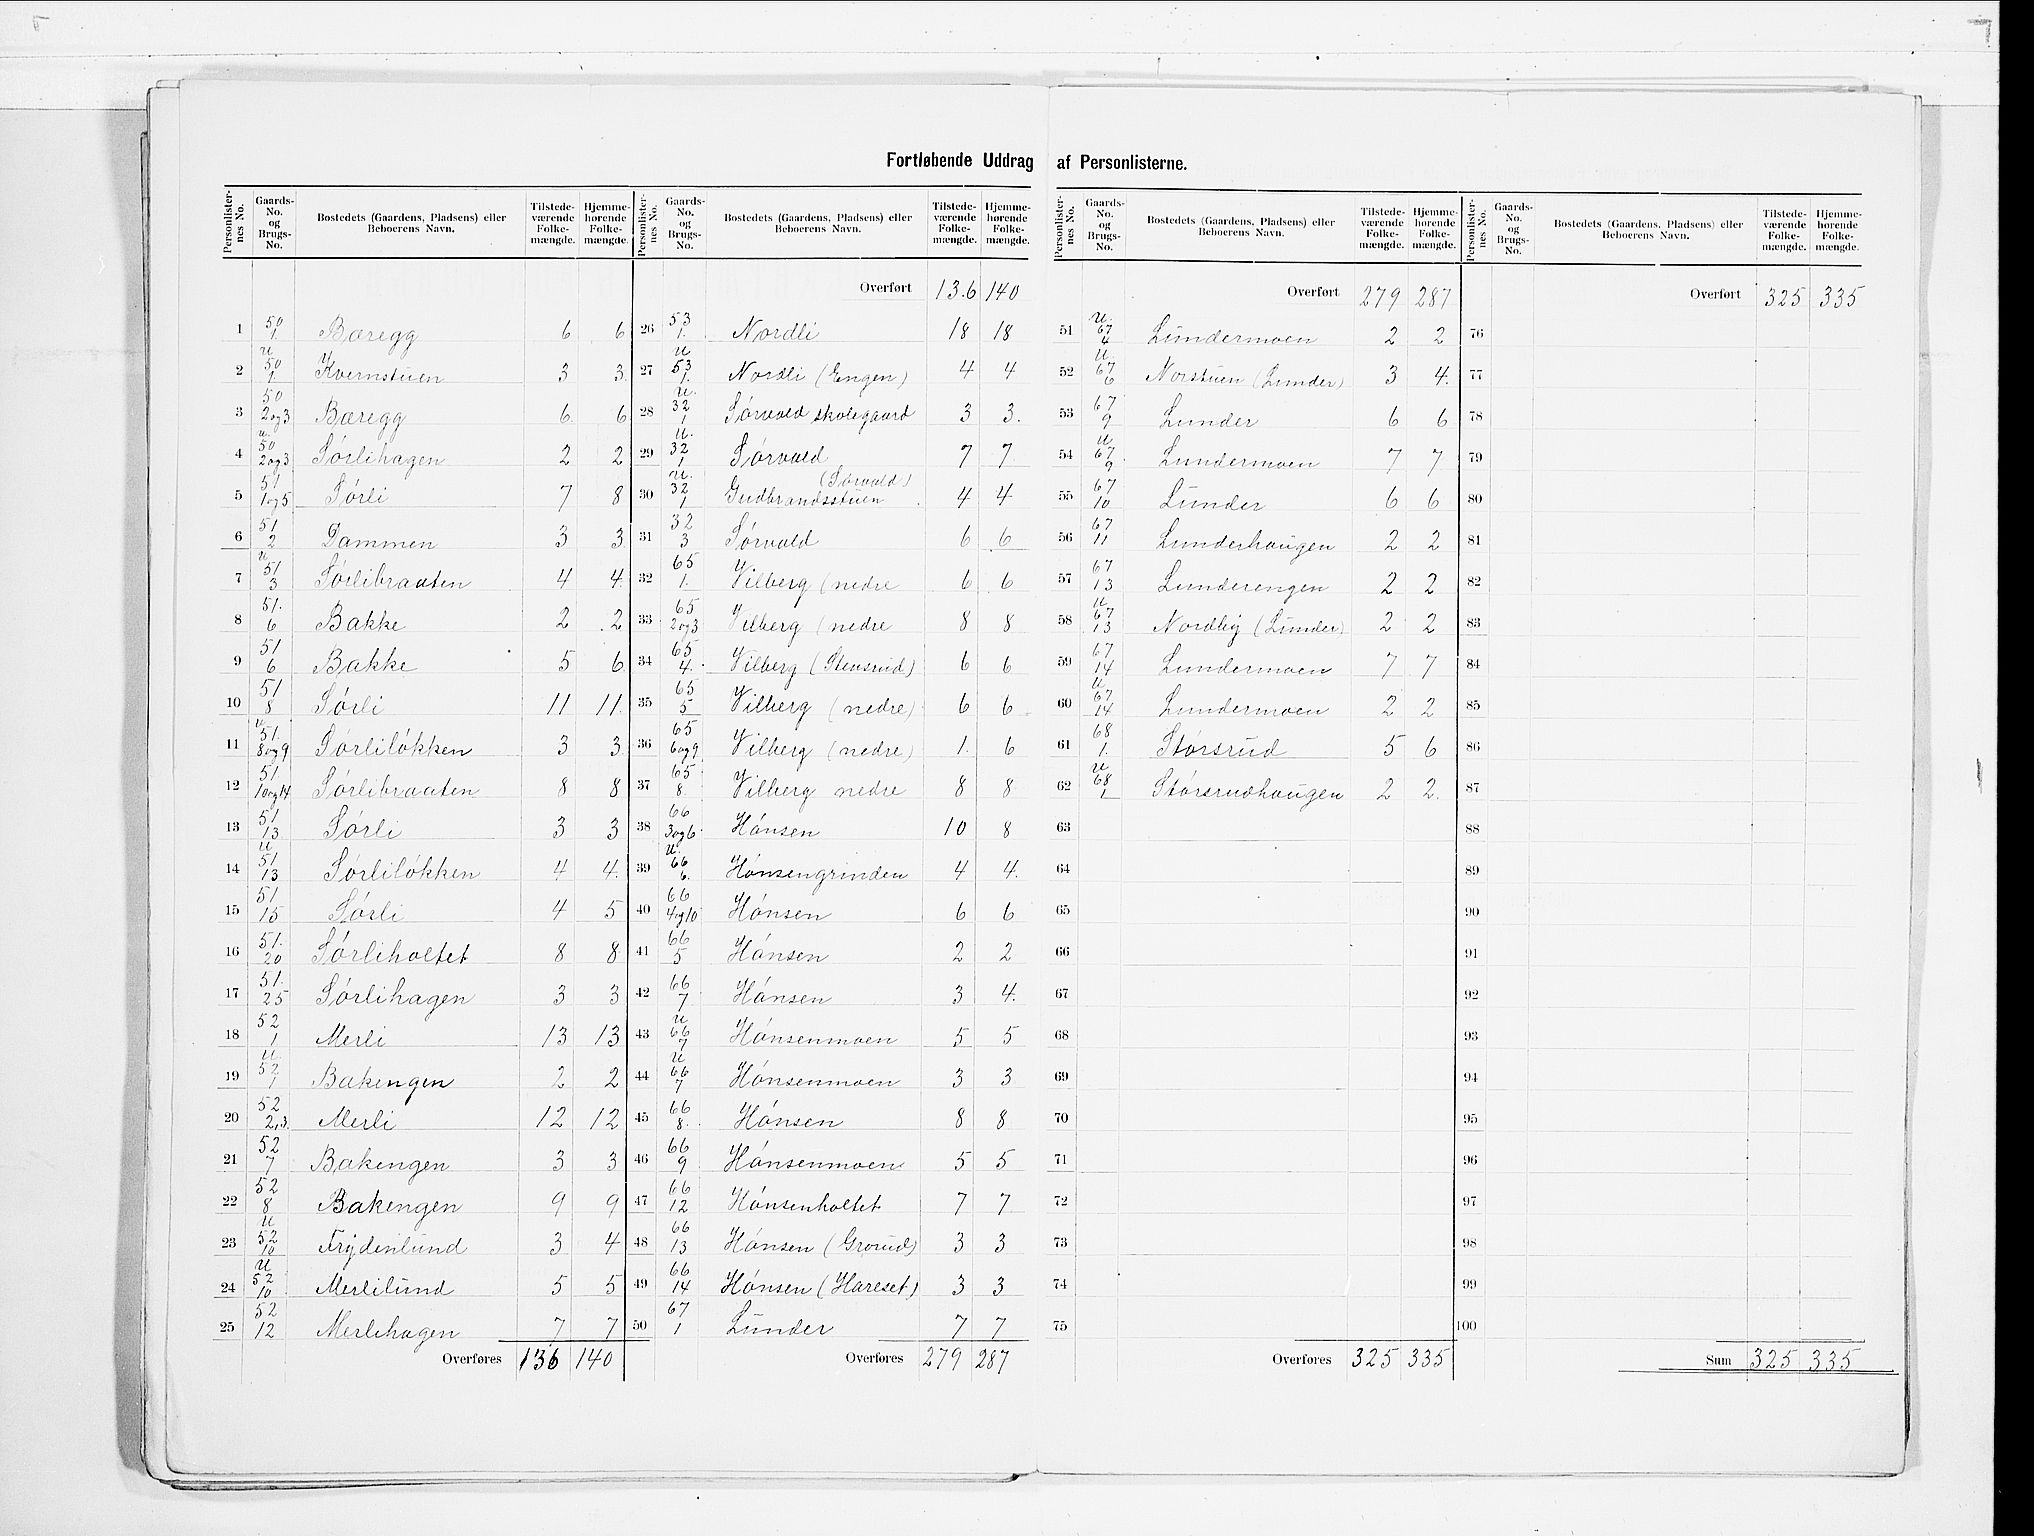 Fortløbende Uddrag af Personlisterne.
Personlisternes No. | Gaards-No. og Brugs-No. | Bostedets (Gaardens, Pladsens) eller Beboerens Navn. | Tilstedeværende Folkemængde. | Hjemmehørende Folkemængde.
1 | 50/1. | Bæregg | 6 | 6
2 | u 50/1 | Kvernstuen | 3 | 3
3 | 50/2og3 | Bæregg | 6 | 6
4 | u. 50/2og3 | Sørlihagen | 2 | 2
5 | 51/1og5 | Sørli | 7 | 8
6 | 51/2 | Dammen | 3 | 3
7 | u 51/3 | Sørlibraaten | 4 | 4
8 | 51./6 | Bakke | 2 | 2
9 | 51/6 | Bakke | 5 | 6
10 | 51/8 | Sørli | 11 | 11
11 | u 51./8og9 | Sørliløkken | 3 | 3
12 | 51/10og14 | Sørlibraaten | 8 | 8
13 | 51/13 | Sørli | 3 | 3
14 | u 51/13 | Sørliløkken | 4 | 4
15 | 51/15 | Sørli | 4 | 5
16 | 51./20 | Sørliholtet | 8 | 8
17 | 51./25 | Sørlihagen | 3 | 3
18 | 52/1 | Merli | 13 | 13
19 | u. 52/1 | Bakengen | 2 | 2
20 | 52/2,3. | Merli | 12 | 12
21 | 52/7 | Bakengen | 3 | 3
22 | 52/8 | Bakengen | 9 | 9
23 | u 52/10 | Frydenlund | 3 | 4
24 | u 52/10 | Merlilund | 5 | 5
25 | 52/12 | Merlihagen | 7 | 7
Overføres 136 140
Personlisternes No. | Gaards-No. og Brugs-No. | Bostedets (Gaardens, Pladsens) eller Beboerens Navn. | Tilstedeværende Folkemængde. | Hjemmehørende Folkemængde.
Overført 13.6 140
26 | 53/1. | Nordli | 18 | 18
27 | u 53/1. | Nordli (Engen) | 4 | 4
28 | u. 32/1 | Sørvald skolegaard | 3 | 3.
29 | u. 32/1 | Sørvald | 7 | 7
30 | u. 32/1 | Gudbrandsstuen (Sørvald) | 4 | 4
31 | 32/3 | Sørvald | 6 | 6
32 | 65/1. | Vilberg (nedre | 6 | 6
33 | 65/2og3 | Vilberg (nedre | 8 | 8
34 | 65/4. | Vilberg (Stensrud) | 6 | 6
35 | 65/5 | Vilberg (nedre) | 6 | 6
36 | 65/6og9 | Vilberg (nedre) | 1. | 6
37 | 65/8. | Vilberg nedre | 8 | 8
38 | 66/3og6. | Hønsen | 10 | 8
39 | u. 66/6. | Hønsengrinden | 4 | 4.
40 | 66/4og10 | Hønsen | 6 | 6
41 | 66/5 | Hønsen | 2 | 2
42 | 66/7 | Hønsen | 3 | 4.
43 | u 66/7 | Hønsenmoen | 5 | 5
44 | u 66/7 | Hønsenmoen | 3 | 3
45 | 66/8. | Hønsen | 8 | 8
46 | 66/9 | Hønsenmoen | 5 | 5
47 | 66/12 | Hønsenholtet | 7 | 7
48 | 66/13 | Hønsen (Grorud) | 3 | 3
49 | 66/14 | Hønsen (Hareset) | 3 | 3
50 | 67/1 | Lunder | 7 | 7
Overføres 279 287
Personlisternes No. | Gaards-No. og Brugs-No. | Bostedets (Gaardens, Pladsens) eller Beboerens Navn. | Tilstedeværende Folkemængde. | Hjemmehørende Folkemængde.
Overført 279 287
51 | u. 67/4 | Lundermoen | 2 | 2
52 | u. 67/6 | Norstuen (Lunder) | 3 | 4.
53 | 67/9 | Lunder | 6 | 6
54 | u 67/9 | Lundermoen | 7 | 7
55 | 67/10 | Lunder | 6 | 6
56 | 67/11 | Lunderhaugen | 2 | 2
57 | 67/13 | Lunderengen | 2 | 2
58 | u 67/13 | Nordby (Lunder) | 2 | 2
59 | 67/14 | Lundermoen | 7 | 7
60 | u 67/14 | Lundermoen | 2 | 2
61 | 68/1. | Størsrud | 5 | 6
62 | u 68/1 | Størsrudhaugen | 2 | 2.
63
64
65
66
67
68
69
70
71
72
73
74
75
Overføres 325 335
Personlisternes No. | Gaards-No. og Brugs-No. | Bostedets (Gaardens, Pladsens) eller Beboerens Navn. | Tilstedeværende Folkemængde. | Hjemmehørende Folkemængde.
Overført 325 335
76
77
78
79
80
81
82
83
84
85
86
87
88
89
90
91
92
93
94
95
96
97
98
99
100
Sum 325 335